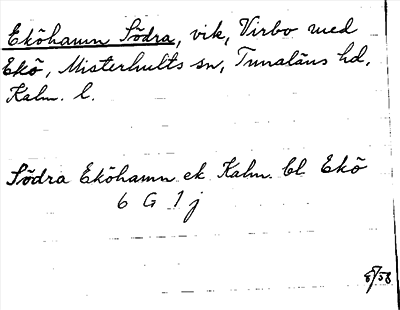 Eköhamn Södra, vik, Virbo med
Ekö, Misterhults sn, Tunaläns hd,
Kalm. l.
Södra Eköhamn ek Kalm. bl Ekö
6 G 1 j
8/58